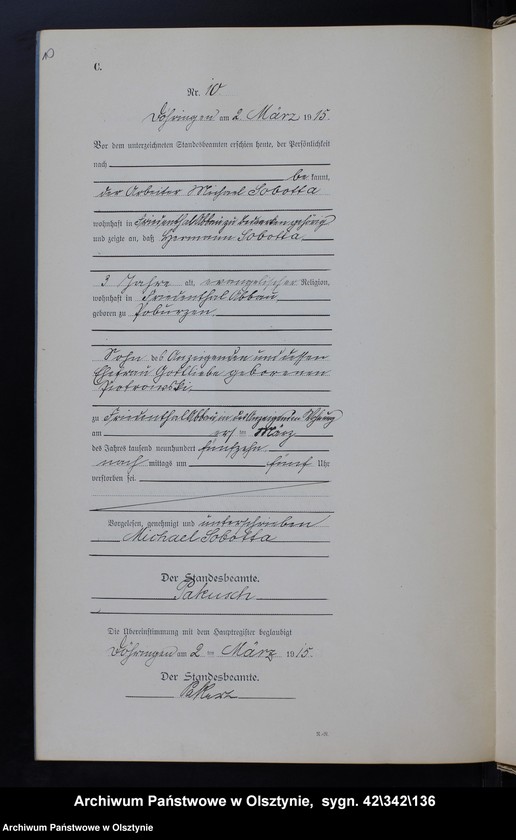 C.
Nr. 10
Döhringen am 2. März 1915.
Vor dem unterzeichneten Standesbeamten erschien heute, der Persönlichkeit
nach
be kannt,
der Arbeiter Michael Sobotta
wohnhaft in Friedenthal Abbau zu gehörig
und zeigte an, daß Hermann Sobotta
3 Jahre alt, evangelischer Religion,
wohnhaft in Friedenthal Abbau
geboren zu Poburzen
Sohn des Anzeigenden und dessen
Ehefrau Gottliebe geborenen
Piotrowski
zu Friedenthal Abbau in des Anzeigenden Wohnung
am ersten März
des Jahres tausend neunhundert fünfzehn
nach mittags um fünf Uhr
verstorben sei.
Vorgelesen, genehmigt und unterschrieben
Michael Sobotta
Der Standesbeamte.
Pakusch
Die Übereinstimmung mit dem Hauptregister beglaubigt
Döhringen am 2 ten März 1915.
Der Standesbeamte.
Archiwum Państwowe w Olsztynie, sygn. 42\342\136
Archiwum Państwowe w Olsztynie